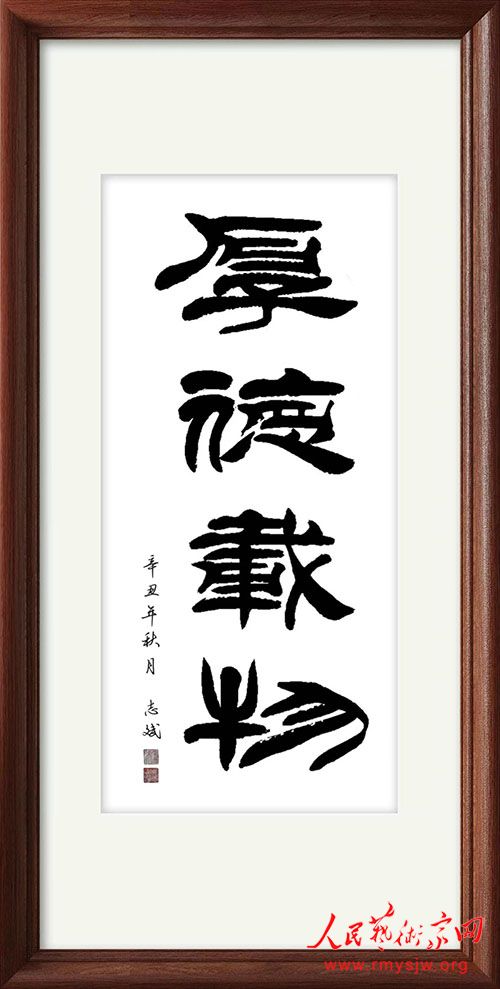 厚德載物
辛丑年秋月 志斌
人民藝術家网
www.rmysjw.org